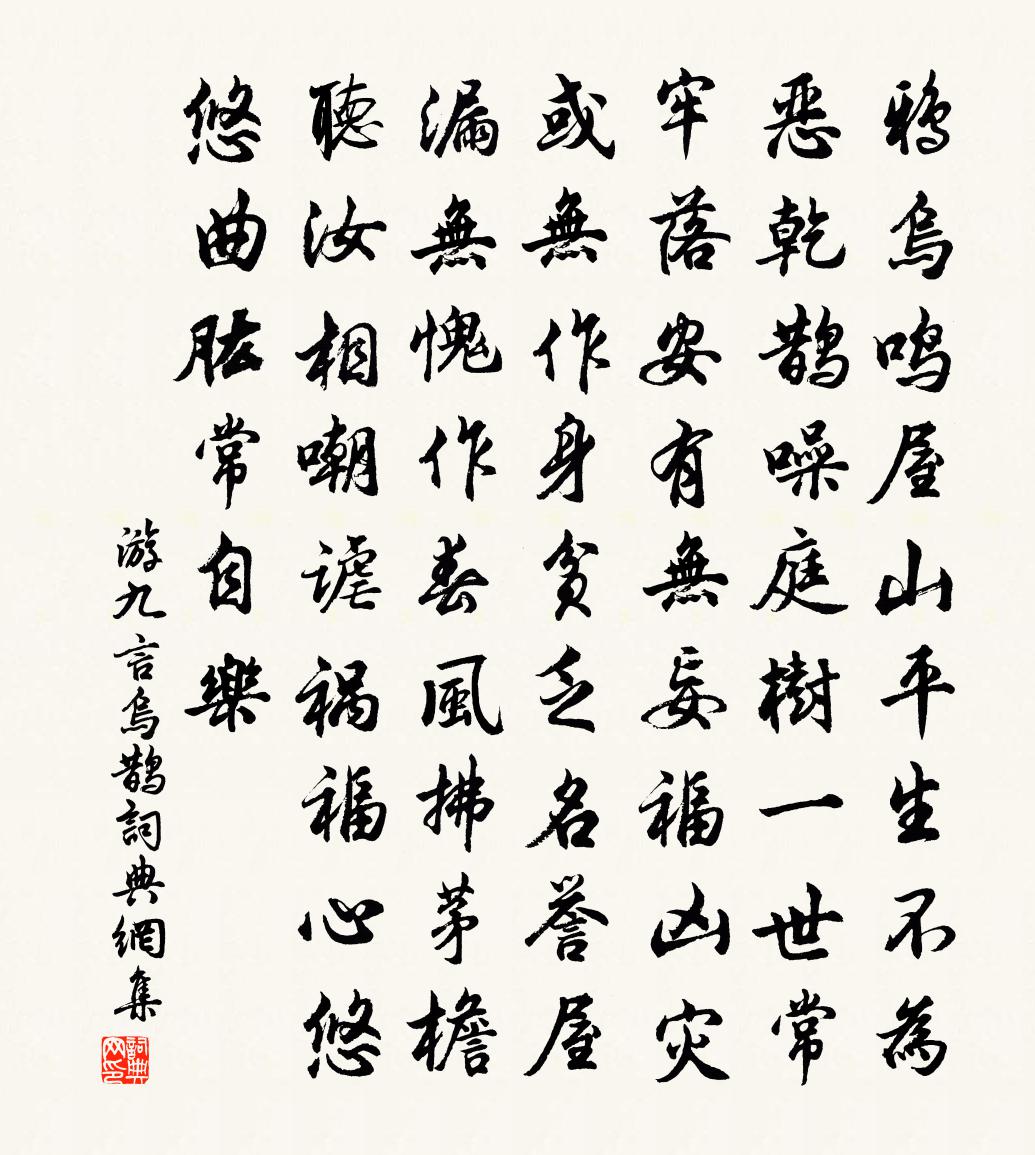 鴉烏鳴屋山平生不為
惡乾鵲噪庭樹一世常
牢落安有無妄福凶災
或無作身貧乏名譽屋
漏無愧作春風拂茅檐
聽汝相嘲謔祸福心悠
悠曲肱常自樂
游九言烏鵲詞典網集
詞典网印